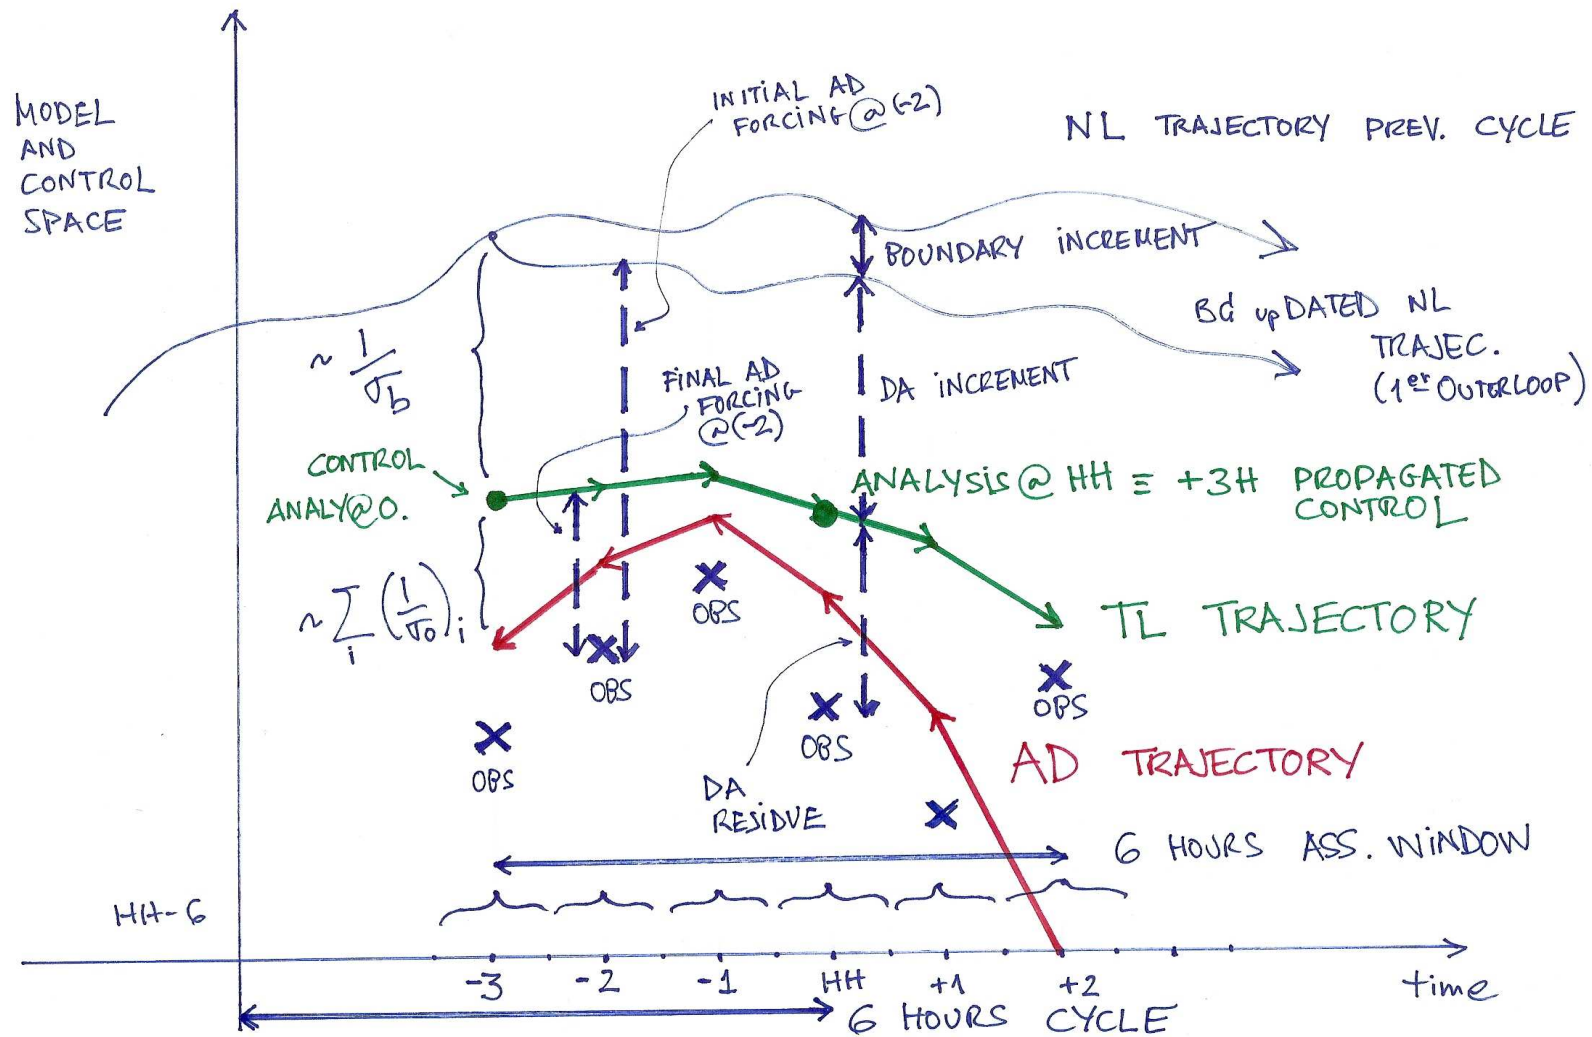 MODEL
AND
CONTROL
SPACE
INITIAL AD
FORCING @(-2)
NL TRAJECTORY PREV. CYCLE
BOUNDARY INCREMENT
BC upDATED NL
TRAJEC.
(1er OUTERLOOP)
~ 1/σb
FINAL AD
FORCING
@(-2)
DA INCREMENT
CONTROL
ANALY@0.
ANALYSIS @ HH ≡ +3H PROPAGATED
CONTROL
~ Σi (1/σo)i
OBS
OBS
OBS
OBS
OBS
TL TRAJECTORY
AD TRAJECTORY
DA
RESIDUE
6 HOURS ASS. WINDOW
HH-6
-3 -2 -1 HH +1 +2
time
6 HOURS CYCLE